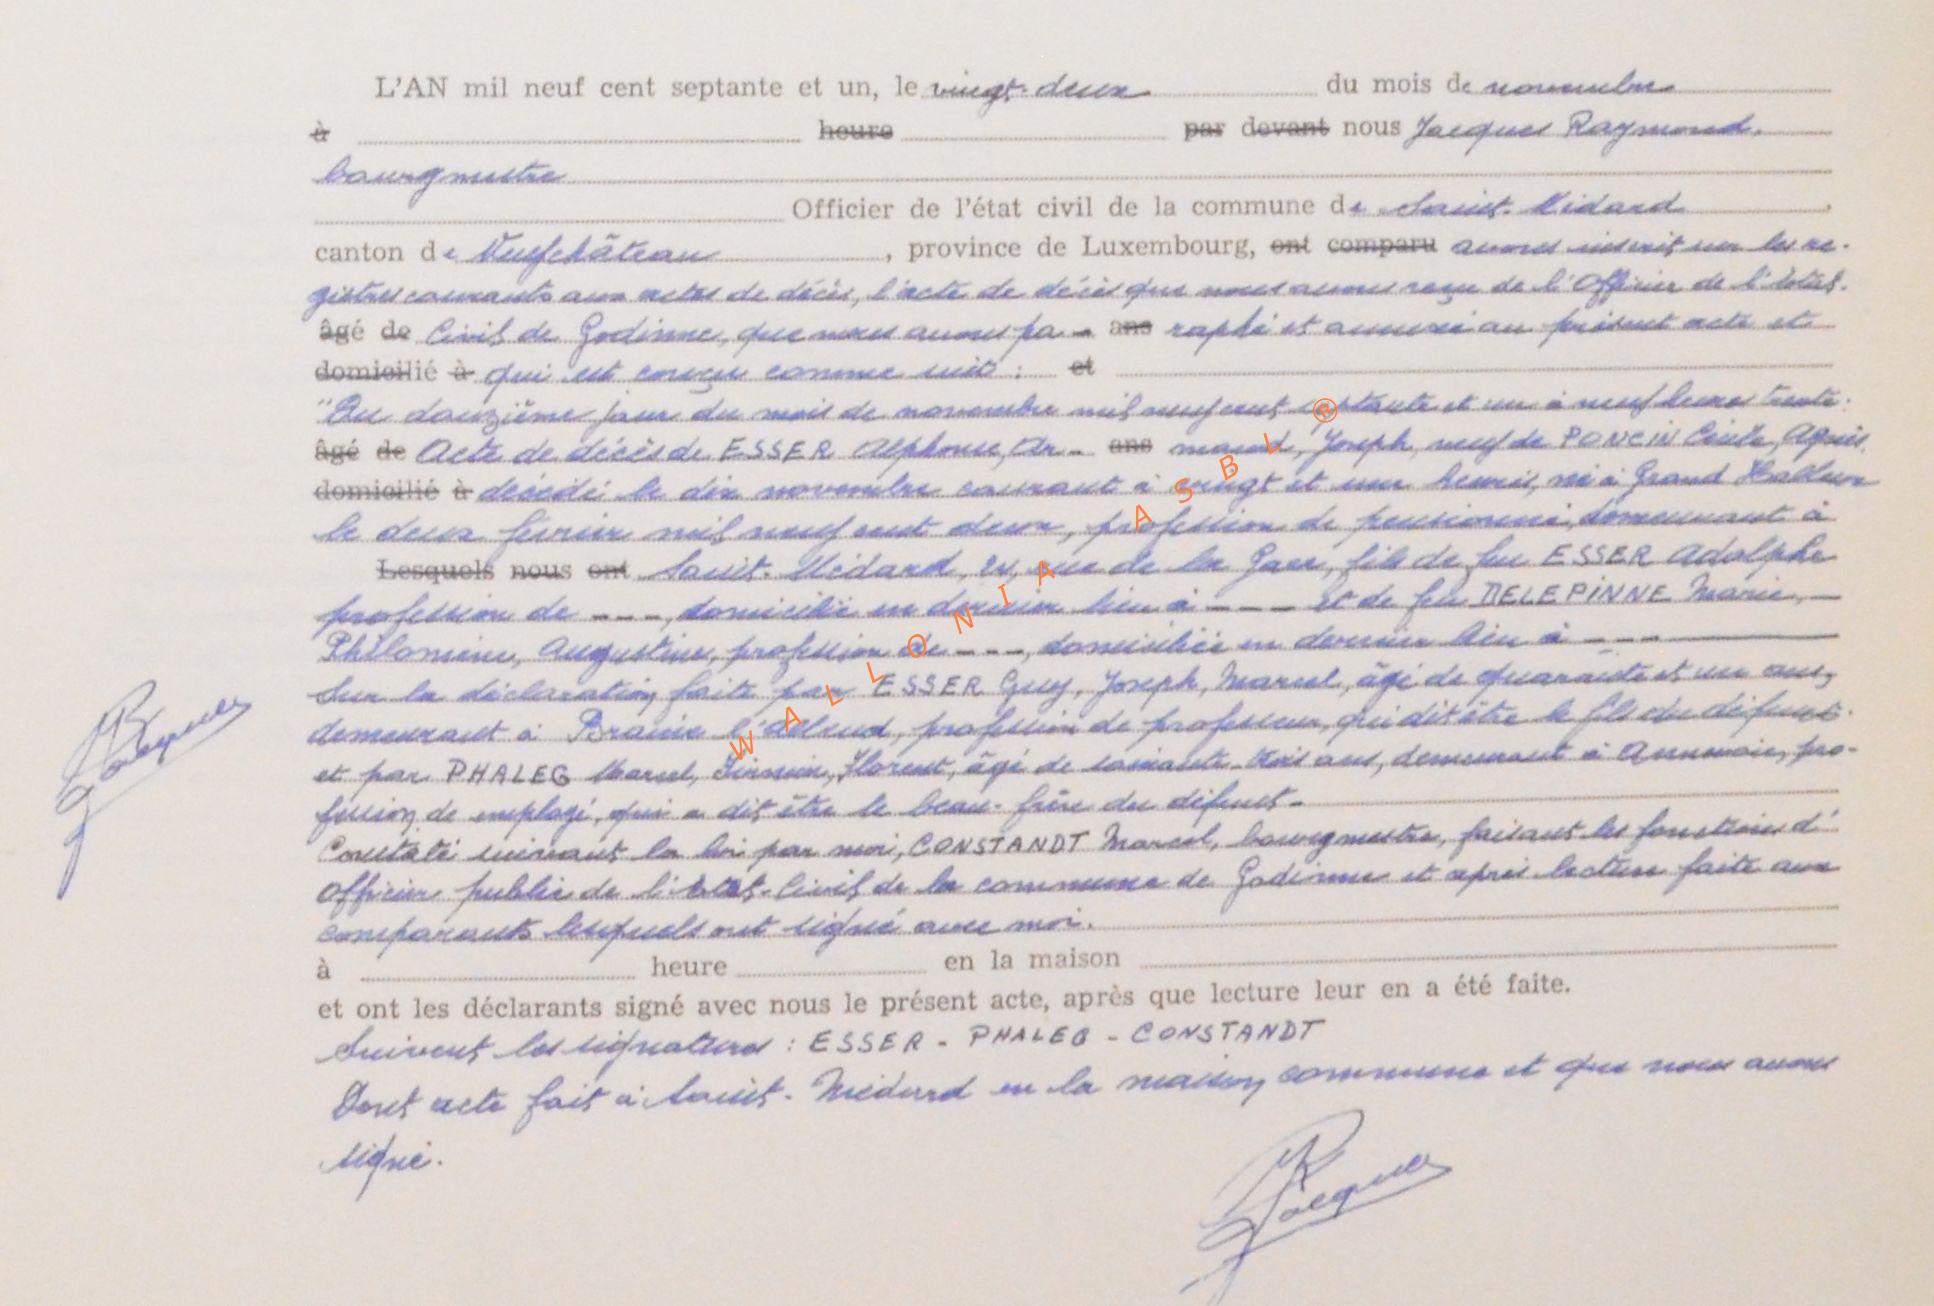 L'AN mil neuf cent septante et un, le vingt-deux du mois de novembre
à heure par devant nous Jacques Raymond,
bourgmestre
Officier de l'état civil de la commune de Saint-Médard,
canton de Neufchâteau, province de Luxembourg, ont comparu avons inscrit sur les re-
gistres courants aux actes de décès, l'acte de décès que nous avons reçu de l'Officier de l'état-
âgé de Civil de Godinne, que nous avons pa- ans raphé et annexé au présent acte et
domicilié à qui est conçu comme suit : et
"Du douzième jour du mois de novembre mil neuf cent septante et un à neuf heures trente.
âgé de Acte de décès de ESSER Alphonse, Ar- ans mand, Joseph, veuf de PONCIN Cécile, Agnès,
domicilié à décédé le dix novembre courant à vingt et une heures, né à Grand Halleux
le deux février mil neuf cent deux, profession de pensionné, demeurant à
Lesquels nous ont Saint-Médard, rue de la fils de feu ESSER Adolphe
profession de ---, domicilié en dernier lieu à --- et de feu DELEPINNE Marie,
Philomène, Augustine, profession de ---, domiciliée en dernier lieu à ---
Sur la déclaration faite par ESSER Guy, Joseph, Marcel, âgé de quarante et un ans,
demeurant à Braine l'Alleud, profession de professeur, qui dit être le fils du défunt.
et par PHALEG Marcel, Firmin, Florent, âgé de soixante-trois ans, demeurant à Annevoie, pro-
fession de employé, qui a dit être le beau-frère du défunt.
Constaté suivant la loi par moi, CONSTANDT Marcel, bourgmestre, faisant les fonctions d'
Officier public de l'état-Civil de la commune de Godinne et après lecture faite aux
comparants lesquels ont signé avec moi.
à heure en la maison
et ont les déclarants signé avec nous le présent acte, après que lecture leur en a été faite.
Suivent les signatures : ESSER - PHALEG - CONSTANDT
Dont acte fait à Saint-Médard en la maison communale et que nous avons
signé.
Jacques
Jacques
WALLONIA ASBL ®